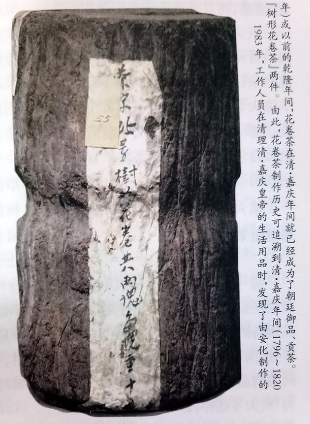 1983年，工作人员在清理清·嘉庆皇帝的生活用品时，发现了由安化制作的
『树形花卷茶』两件。由此，花卷茶制作历史可追溯到清·嘉庆年间(1796~1820
年)或以前的乾隆年间，花卷茶在清·嘉庆年间就已经成为了朝廷御品、贡茶。
55
号樹花卷共兩塊重十